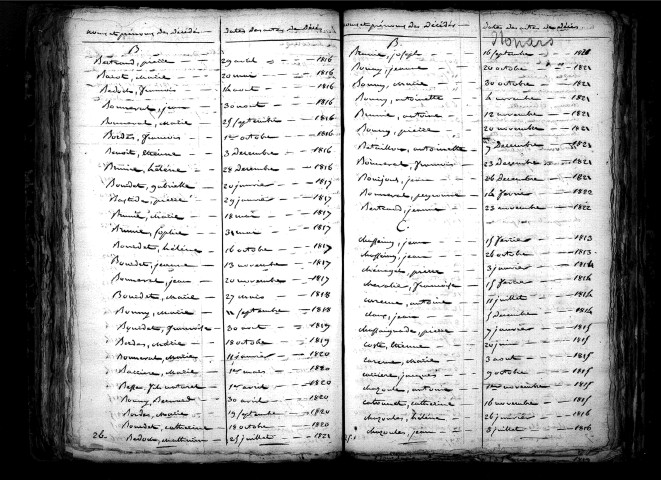 noms et prénoms des décédés dates des actes de décès
B
Bertrand, pierre 29 avril 1816
20 mai 1816
14 aout 1816
Bonneval, jean 30 aout 1816
Bonneval, marie 25 septembre 1816
Bordes, francois 1er octobre 1816
Benoit, etienne 3 Decembre 1816
Brunie, hélène 28 Decembre 1816
Bouedet, gabrielle 20 janvier 1817
Bastide, pierre 29 janvier 1817
Brunie, marie 18 mai 1817
Brunie, sophie 31 mai 1817
Bouedet, hélène 16 octobre 1817
Bouedet, jeanne 13 novembre 1817
Bonneval, jean 20 novembre 1817
Bouedet, marie 27 mars 1818
Bonny, marie septembre 1818
Bouedet, francoise 30 avril 1819
Bordes, marie 18 octobre 1819
Bonneval, marie 11 janvier 1820
marie 1er mars 1820
1er avril 1820
Bonny, Bernard 30 avril 1820
Bordes, marie 19 septembre 1820
Bouedet, catherine 18 octobre 1820
26. 25 juillet 1821
noms et prénoms des décédés dates des actes de décès
Nonars
B.
Brunie, joseph 16 septembre 1821
Bonny, jeanne 20 octobre 1821
Bonny, marie 30 octobre 1821
Bonny, antoinette 4 novembre 1821
Brunie, antoine 12 novembre 1821
Bonny, pierre 20 novembre 1821
Bataillon, antoinette 7 Decembre 1821
francois 23 Decembre 1821
jean 26 Decembre 1821
Bonneval, peyronne 14 fevrier 1822
Bertrand, jeanne 23 novembre 1822
C.
chassaing, jean 15 fevrier 1813
chassaing, jean 26 octobre 1813
pierre 3 janvier 1814
chevalier, francoise 15 fevrier 1814
antoine 11 juillet 1814
jean 5 Decembre 1814
pierre 7 janvier 1815
coste, etienne 20 juin 1815
marie 3 aout 1815
carriere, jacques 9 octobre 1815
chazoule, antoine 1er novembre 1815
catherine 16 novembre 1815
chazoules, hélène 26 janvier 1816
chazoules, jean 8 juillet 1816